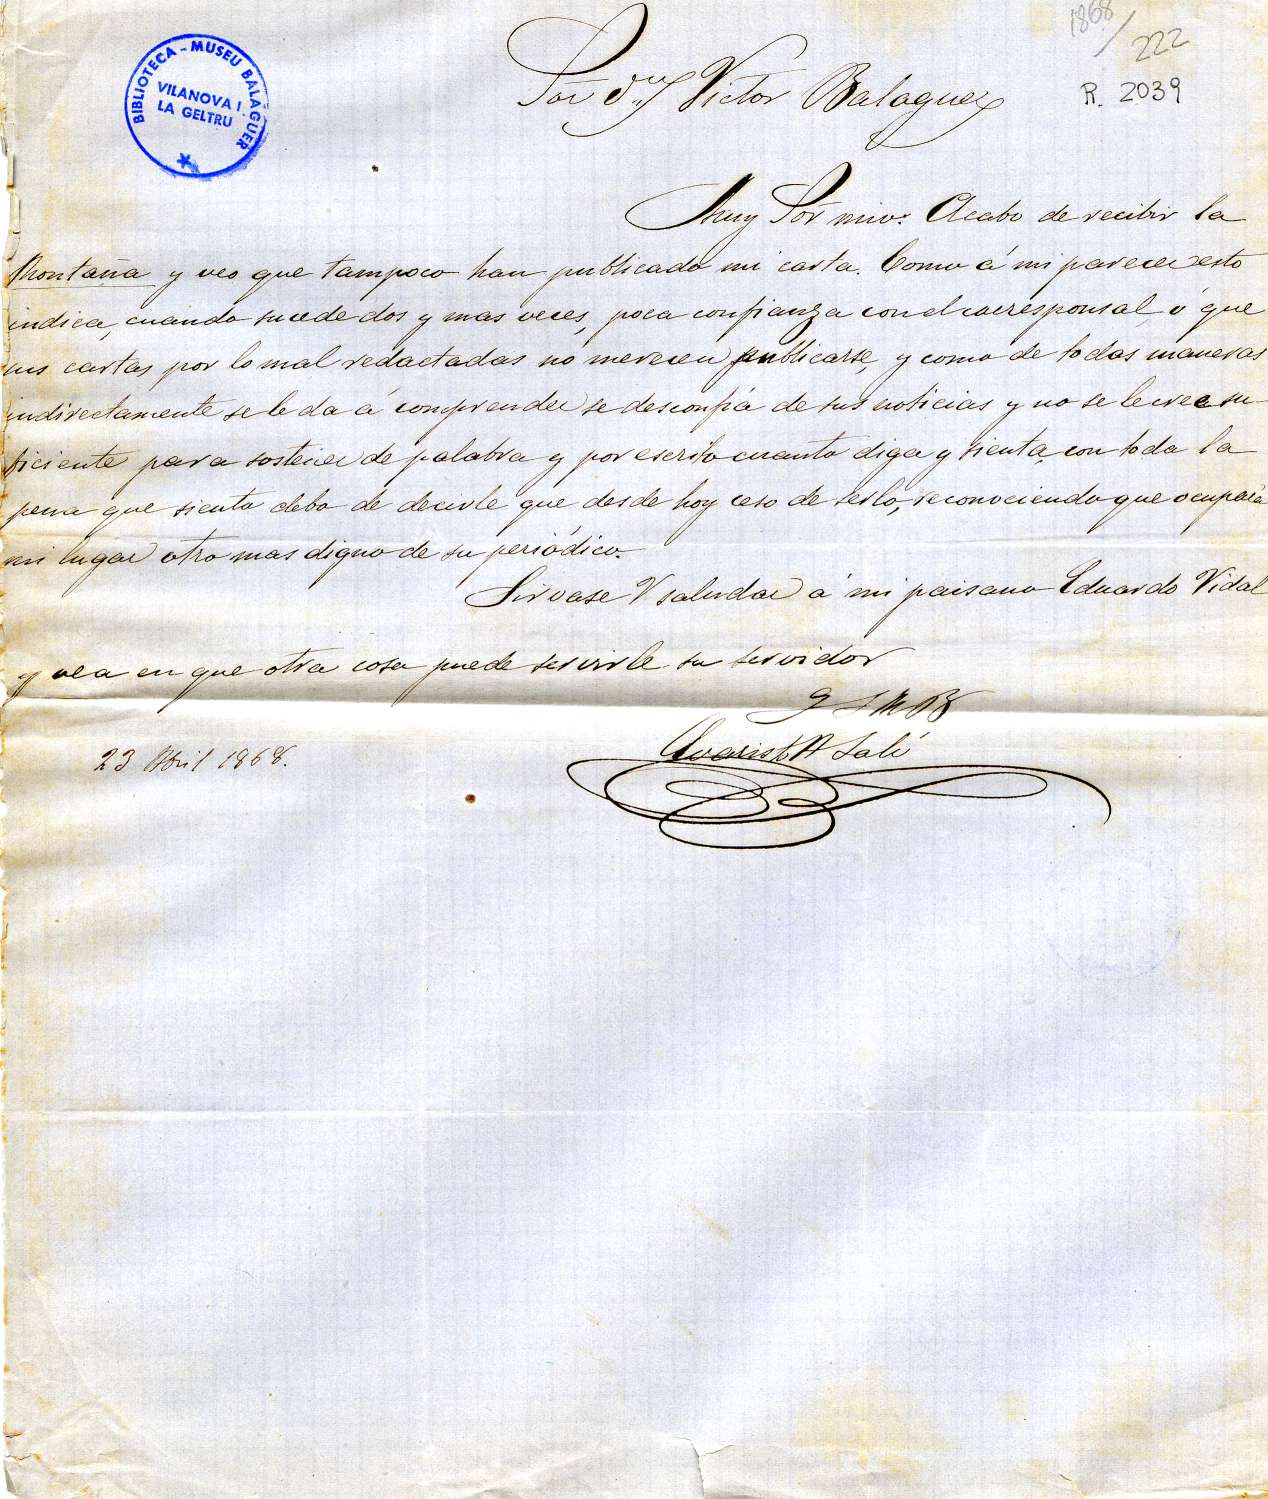 1868/222
R. 2039
BIBLIOTECA - MUSEU BALAGUER
VILANOVA I
LA GELTRÚ
Sor Dn Victor Balaguer
Muy Sor mio: Acabo de recibir la
Montaña y veo que tampoco han publicado mi carta. Como á mi parecer esto
indica, cuando sucede dos y mas veces, poca confianza con el corresponsal, ó que
sus cartas por lo mal redactadas no merecen publicarse, y como de todas maneras
indirectamente se le da á comprender se desconfia de sus noticias y no se le cree su-
ficiente para sostener de palabra y por escrito cuanto diga y sienta, con toda la
pena que siento debo de decirle que desde hoy ceso de serlo, reconociendo que ocupará
mi lugar otro mas digno de su periódico.
Sirvase V saludar á mi paisano Eduardo Vidal
y vea en que otra cosa puede servirle su servidor
Q S M B
Evaristo A Saló
23 Abril 1868.